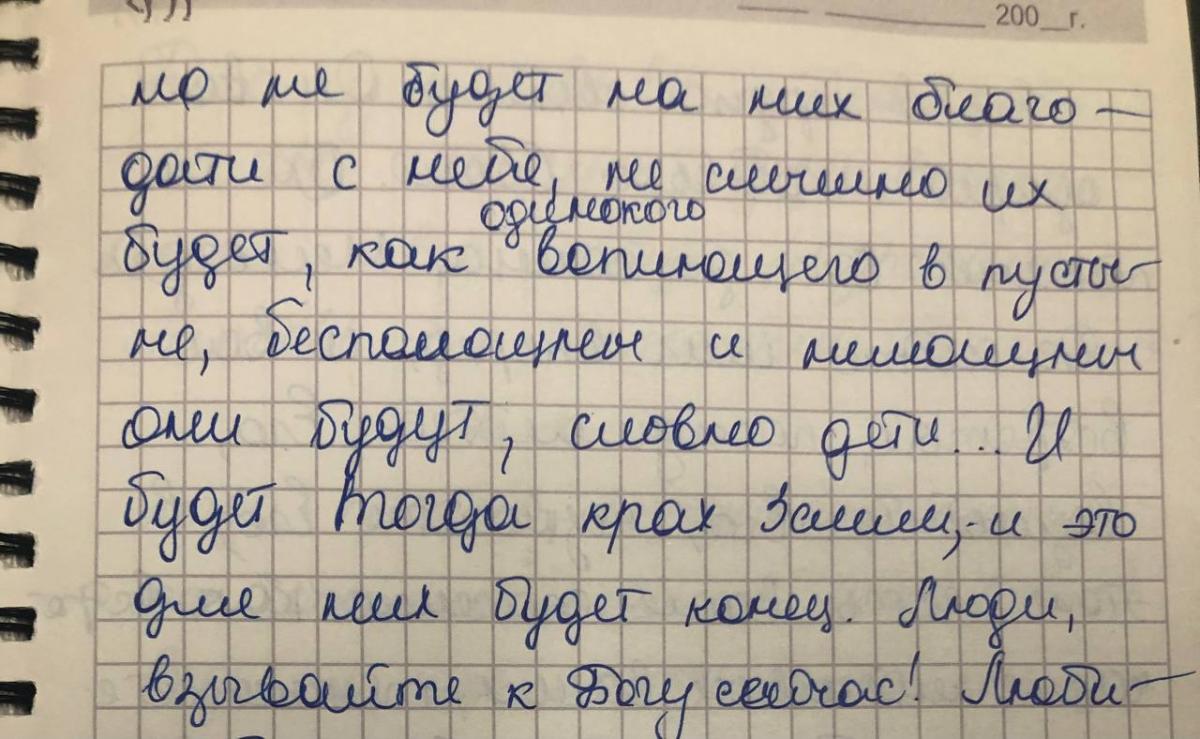 200__г.
но не будет на них благо-
дати с небе, не слышно их
одинокого
будет, как вопиющего в пусты-
не, беспомощны и немощны
они будут, словно дети... И
будет тогда крах Земли, - и это
для них будет конец. Люди,
взывайте к Богу сейчас! Люби-